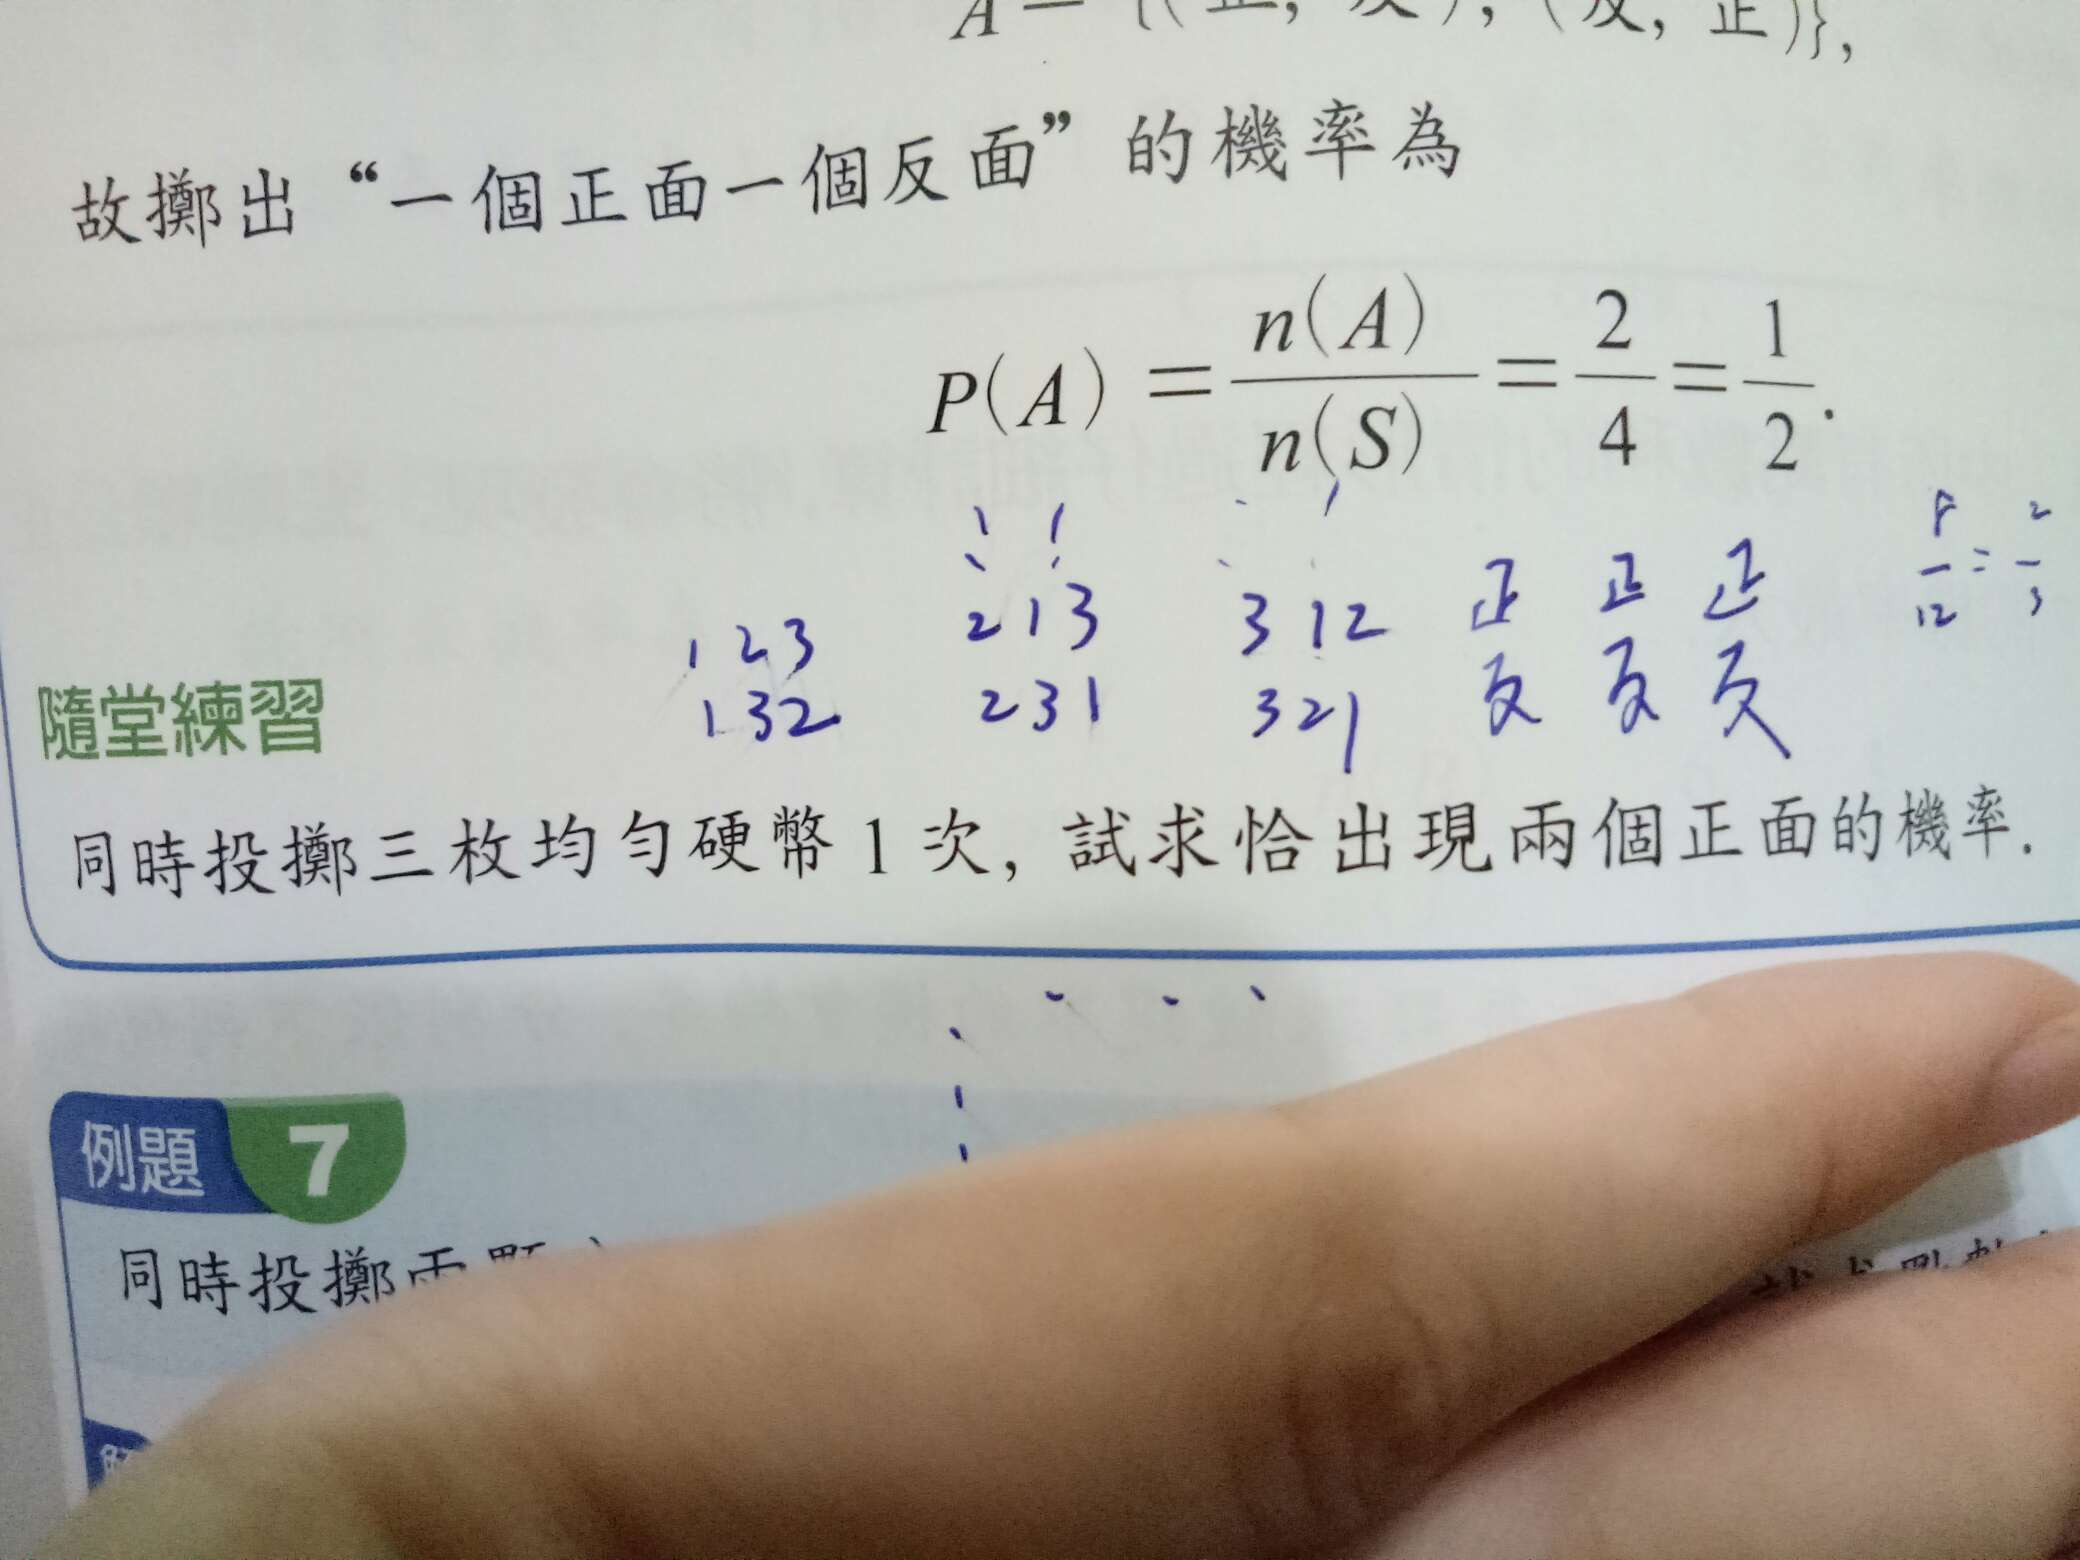 A = {(正, 反), (反, 正)},
故擲出“一個正面一個反面”的機率為
P(A) = n(A)/n(S) = 2/4 = 1/2.
123 213 312 正 正 正
132 231 321 反 反 反
隨堂練習
同時投擲三枚均勻硬幣 1 次, 試求恰出現兩個正面的機率.
例題 7
同時投擲兩顆